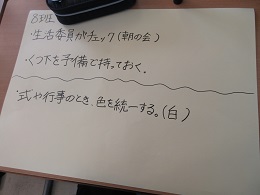 8班
・生活委員がチェック(朝の会)
・くつ下を予備で持っておく.
・式や行事のとき、色を統一する。(白)